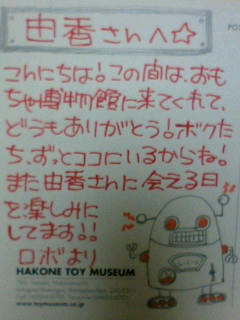 由香さんへ☆
こんにちは!この間は、おも
ちゃ博物館に来てくれて、
どうもありがとう!ボクた
ち、ずっとココにいるからね!
また由香さんに会える日
を楽しみに
してます!!
ロボより
HAKONE TOY MUSEUM
www.toymuseum.co.jp